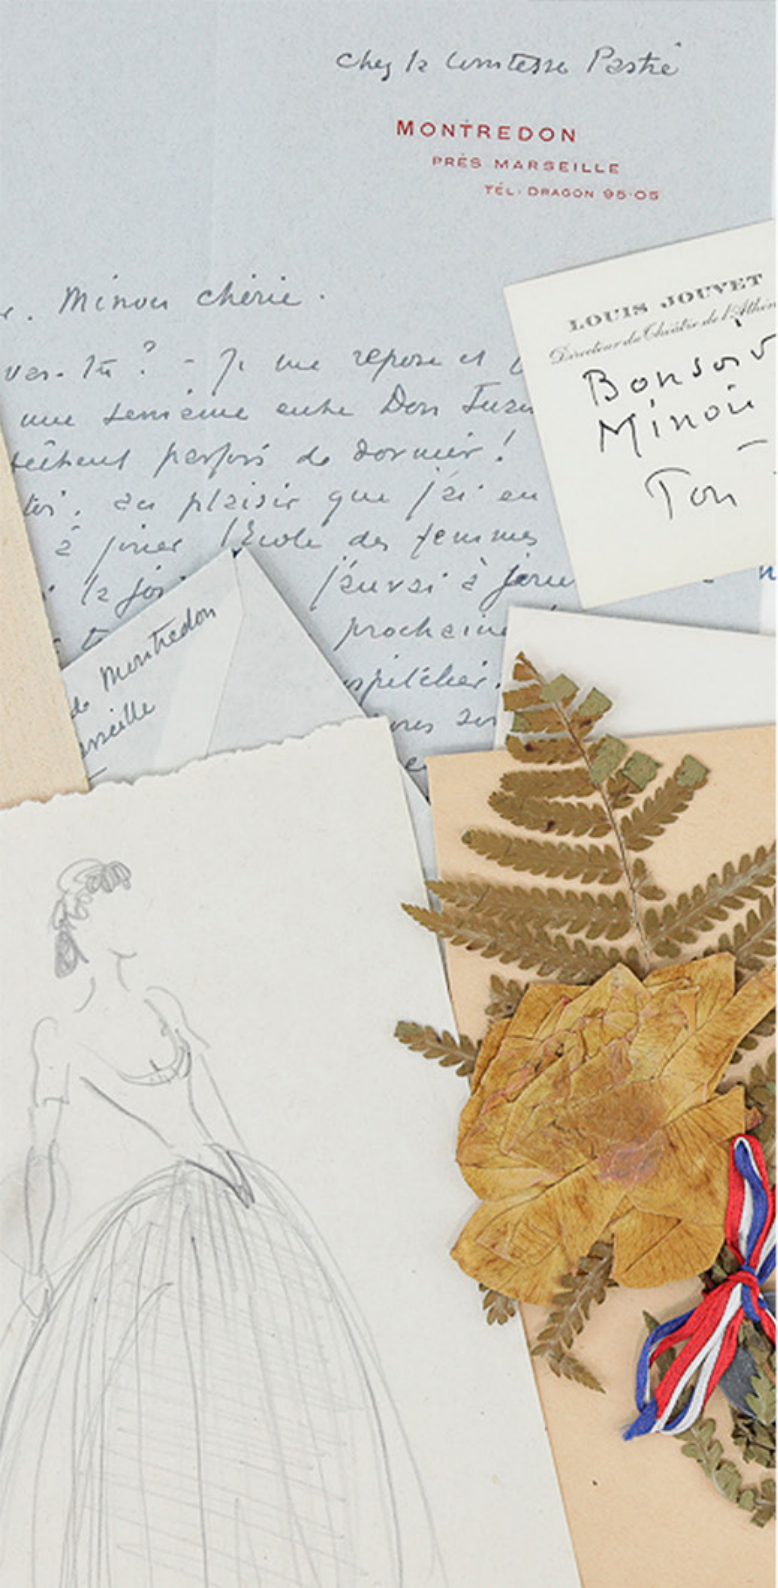 Chez la Comtesse Pastré
MONTREDON
PRÈS MARSEILLE
TÉL. DRAGON 95-05
Minou chérie.
vas-tu? - Je me repose et
une semaine entre Don Juan
parfois de dormir!
au plaisir que j'ai eu
à jouer l'Ecole des femmes
j'aurai à jouer
prochaine
LOUIS JOUVET
Directeur du Théâtre de l'Athén
Bonsoir
Minou
Ton
de Montredon
arseille